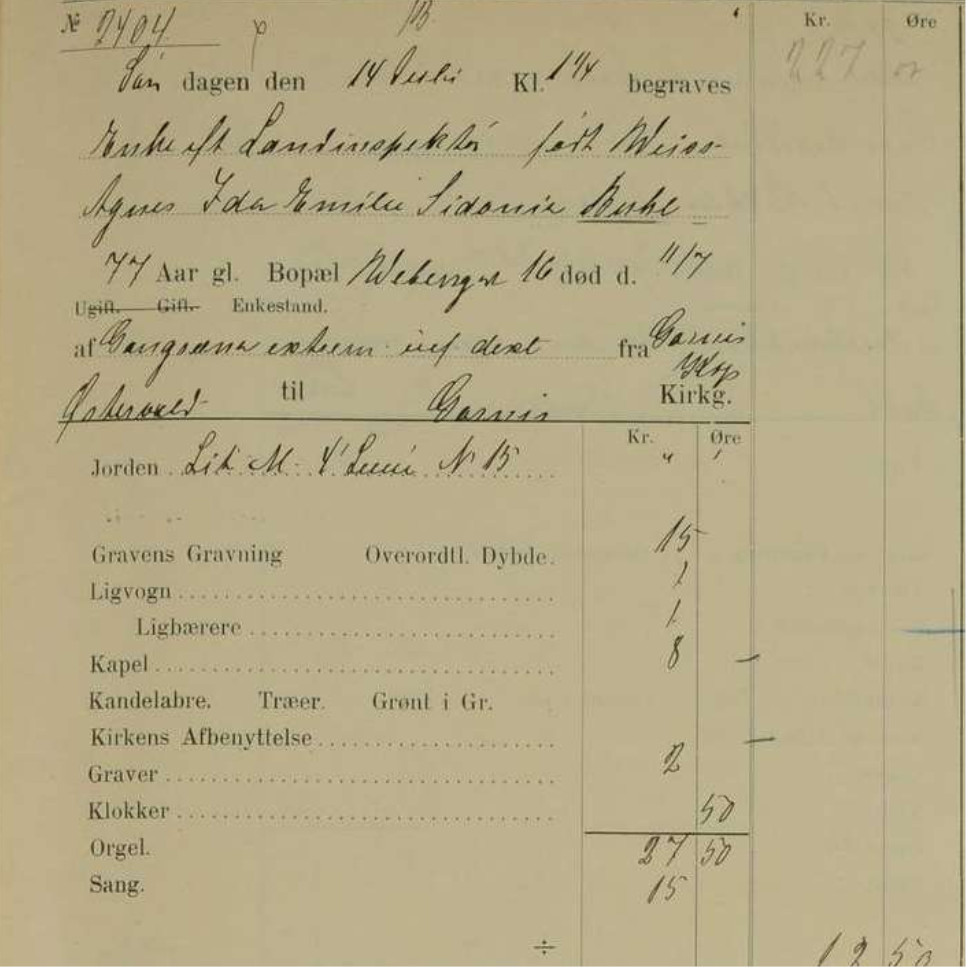 № 2404 B. Kr. Øre
Søn dagen den 14 Juli Kl. 1¼ begraves 227
Enke eft Landinspektør født Weiss
Agnes Ida Emilie Sidonie
77 Aar gl. Bopæl 16 død d. 11/7
Ugift. Gift. Enkestand.
af Gangræna extrem inf dext fra Garnis
Kap
til Garnis Kirkg.
Kr. Øre
Jorden Lit. M. 4' Linie N 15 " "
Gravens Gravning Overordtl. Dybde. 15
Ligvogn 1
Ligbærere 1
Kapel 8
Kandelabre. Træer. Grønt i Gr.
Kirkens Afbenyttelse
Graver 2
Klokker 50
Orgel. 27 50
Sang. 15
÷ 12 50